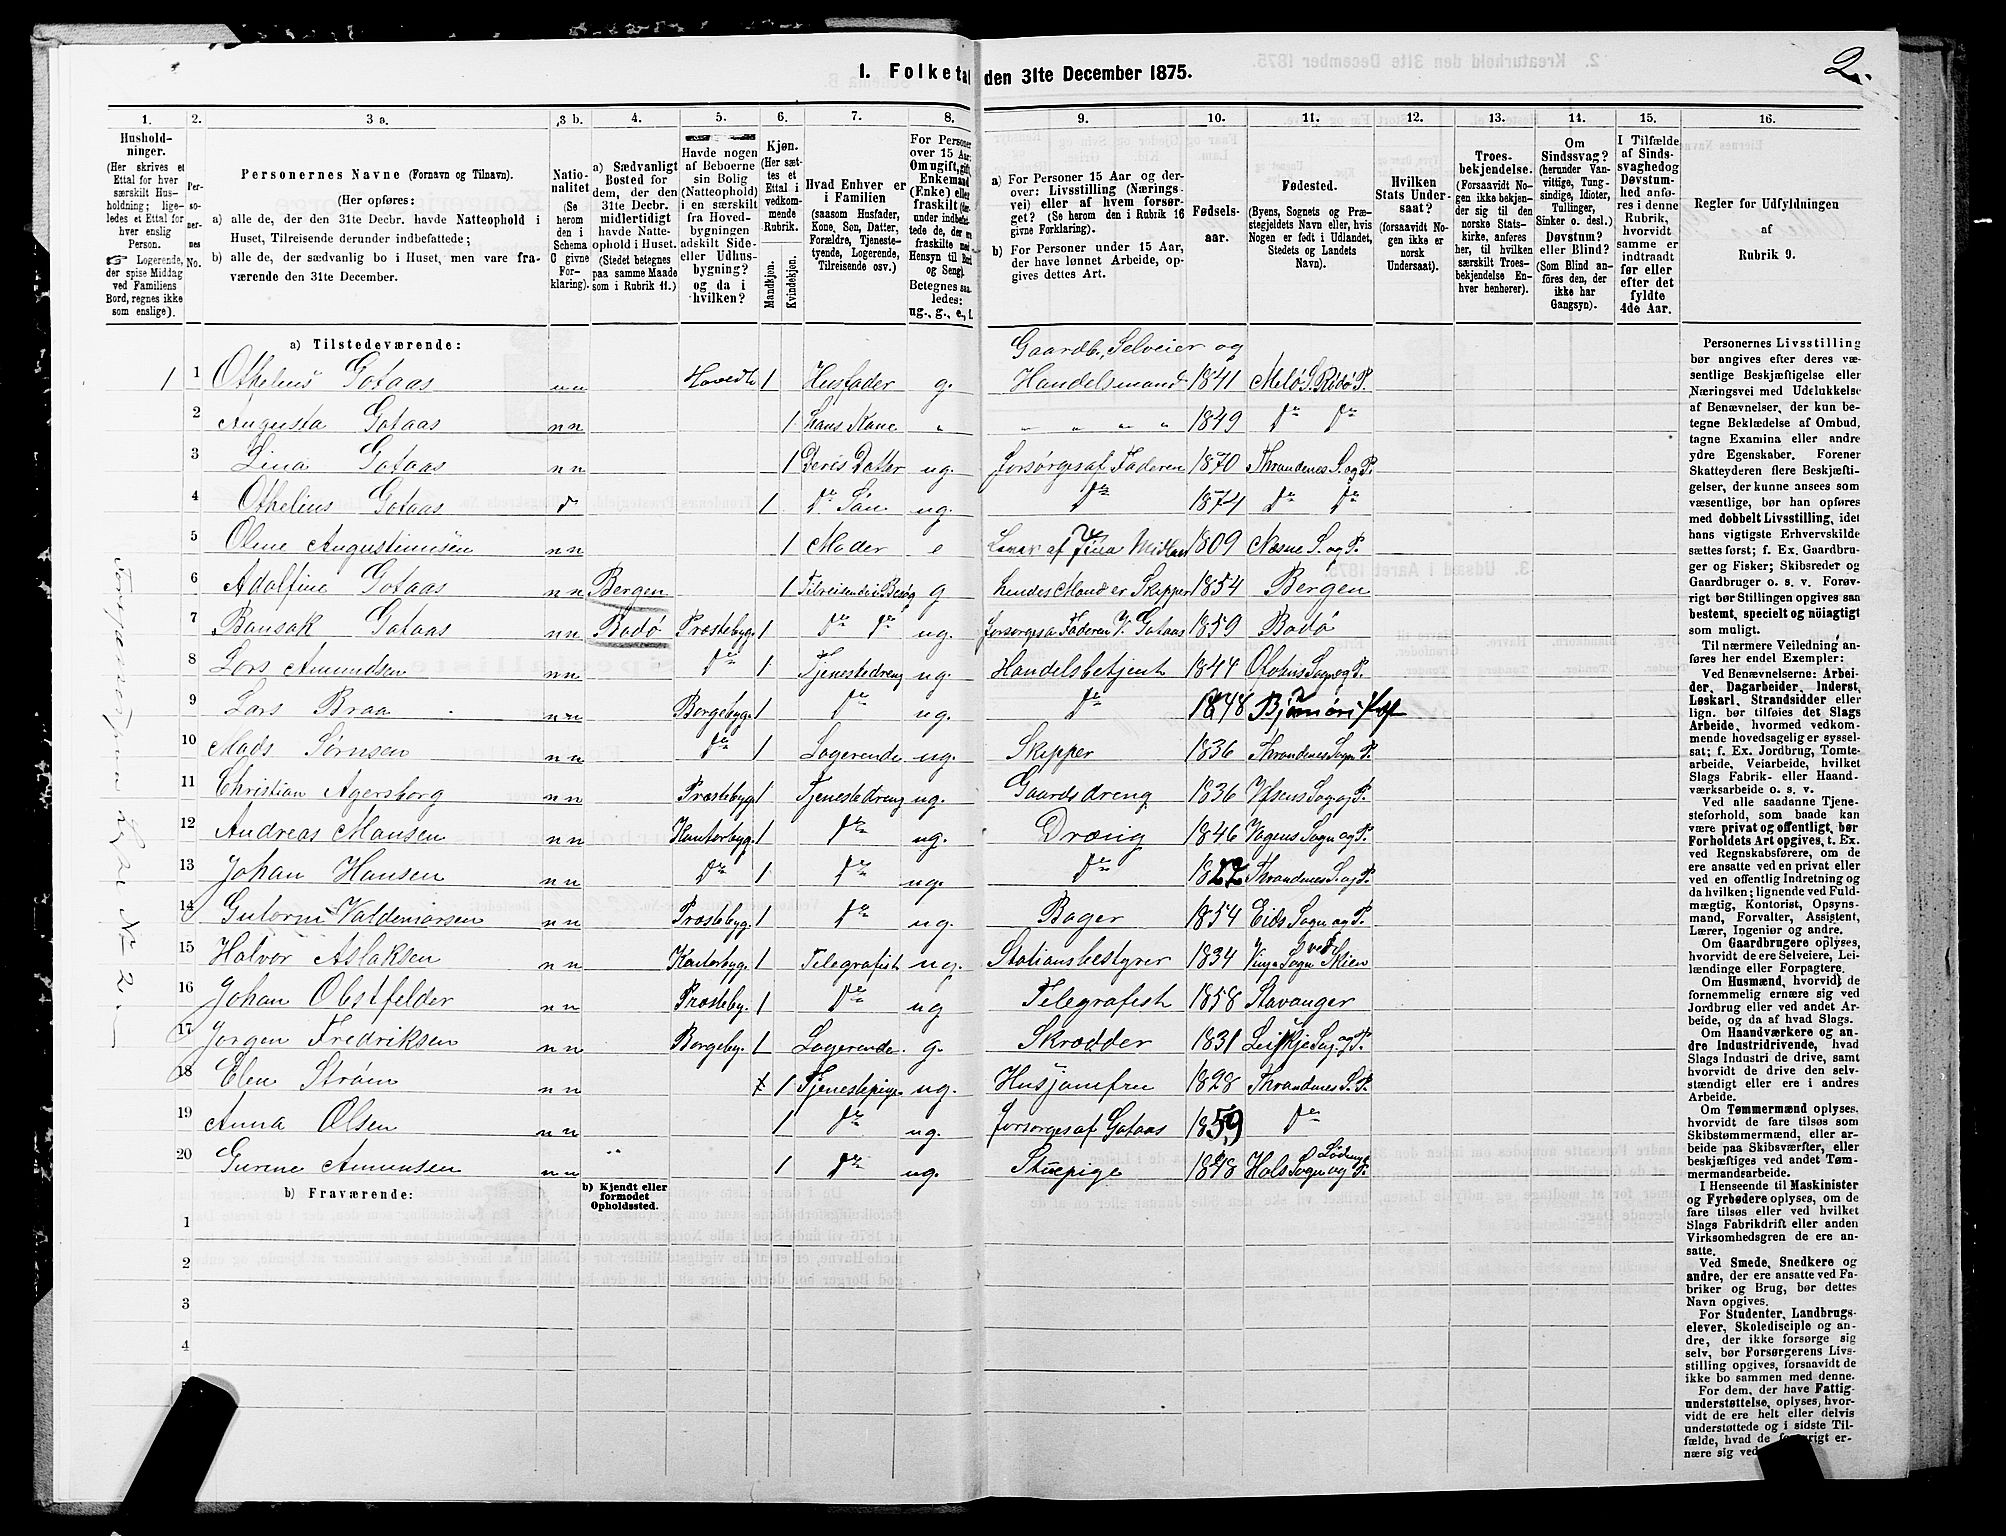 2.
1. Folketal den 31te December 1875.
1. 2. 3 a. 3 b. 4. 5. 6. 7. 8. 9. 10. 11. 12. 13. 14. 15. 16.
Hushold-
ninger.
(Her skrives et
Ettal for hver
særskilt Hus-
holdning; lige-
ledes et Ettal for
hver enslig
Person.
☞ Logerende,
der spise Middag
ved Familiens
Bord, regnes ikke
som enslige).
Per-
so-
ner-
nes
No.
Personernes Navne (Fornavn og Tilnavn).
(Her opføres:
a) alle de, der den 31te Decbr. havde Natteophold i
Huset, Tilreisende derunder indbefattede;
b) alle de, der sædvanlig bo i Huset, men vare fra-
værende den 31te December.
Natio-
nalitet
(Se
herom
den i
Schema
C givne
For-
klaring).
a) Sædvanligt
Bosted for
dem, der den
31te Decbr.
midlertidigt
havde Natte-
ophold i Huset.
(Stedet betegnes
paa samme Maade
som i Rubrik 11.)
Havde nogen
af Beboerne
sin Bolig
(Natteophold)
i en særskilt
fra Hoved-
bygningen
adskilt Side-
eller Udhus-
bygning?
og da i
hvilken?
Kjøn.
(Her sæt-
tes et
Ettal i
vedkom-
mende
Rubrik.
Mandkjøn.
Kvindekjøn.
Hvad Enhver er
i Familien
(saasom Husfader,
Kone, Søn, Datter,
Forældre, Tjeneste-
tyende, Logerende,
Tilreisende osv.)
For Personer
over 15 Aar:
Om ugift, gift,
Enkemand
(Enke) eller
fraskilt
Betegnes saa-
ledes:
ug., g., e., f.
a) For Personer 15 Aar og der-
over: Livsstilling (Nærings-
vei) eller af hvem forsør-
get? (Se herom den i Rubrik 16
givne Forklaring).
b) For Personer under 15 Aar,
der have lønnet Arbeide, op-
gives dettes Art.
Fødsels-
aar.
Fødested.
(Byens, Sognets og Præ-
stegjeldets Navn eller, hvis
Nogen er født i Udlandet,
Stedets og Landets
Navn).
Hvilken
Stats Under-
saat?
(forsaavidt No-
gen ikke er
norsk
Undersaat).
Troes-
bekjendelse.
(Forsaavidt No-
gen ikke bekjen-
der sig til den
norske Stats-
kirke, anføres
her, til hvilken
særskilt Troes-
bekjendelse En-
hver henhører).
Om
Sindssvag?
(herunder Van-
vittige, Tung-
sindige, Idioter,
Tullinger,
Sinker o. desl.)
Døvstum?
eller Blind?
(Som Blind an-
føres den, der
ikke har
Gangsyn).
I Tilfælde
af Sinds-
svaghed og
Døvstum-
hed anfø-
res i denne
Rubrik,
hvorvidt
samme er
indtraadt
før eller
efter det
fyldte
4de Aar.
Regler for Udfyldningen
af
Rubrik 9.
a) Tilstedeværende:
1 1 Othelius Gotaas nn Hovedb 1 Husfader g. Gaardb., Selveier og Handelsmand 1841 Melø S. Rødø P.
2 Augusta Gotaas nn 1 Hans Kone „ „ „ „ „ 1849 do do
3 Lina Gotaas nn 1 Deres Datter ug. forsørges af Faderen 1870 Thrandenes S. og P.
4 Othelius Gotaas do 1 do Søn ug. do 1874 do do
5 Oline Augustinusen nn 1 Moder e Lever af sine Midler 1809 Næsne S. og P.
6 Adolfine Gotaas nn Bergen 1 Tilreisende i Besøg g hendes Mand er Skipper 1854 Bergen
7 Bansak Gotaas nn Bodø Præstebyg. 1 do do ug. forsørges a Faderen V. Gotaas 1859 Bodø
8 Lars Amundsen nn do 1 Tjenestedreng ug. Handelsbetjent 1844 Ofotens Sogn og P.
9 Lars Braa nn Borgebyg. 1 do ug. do 1848
10 Mads Sørnsen nn do 1 Logerende ug. Skipper 1836 Thrandenes Sogn P.
11 Christian Agersborg nn Præstebyg 1 Tjenestedreng ug. Gaardsdreng 1836 Vefsens Sog og P.
12 Andreas Mansen nn Kontorbyg. 1 do ug. Dræng 1846 Vagens Sogn og P.
13 Johan Hansen nn do 1 do ug. do Thrandenes S. og P.
14 Gutorm Valdemarsen nn Præstebyg. 1 do ug. Bager 1854 Eids Sogn og P.
15 Halvor Aslaksen nn Kontorbyg. 1 Telegrafist ug. Stationsbestyrer 1834 Vinje Sogn ved Skien
16 Johan Obstfelder nn Præsteby. 1 do ug Telegrafist 1858 Stavanger
17 Jørgen Fredriksen nn Borgeby. 1 Logerende. g. Skrædder 1831 P.
18 Elen Strøm nn 1 Tjenestepige ug. Husjomfru 1828 Thrandenes S. P.
19 Anna Olsen nn 1 do ug. forsørges af Gotaas 1859 do
20 Gurine Amunsen nn 1 do ug. Stuepige 1848 Hols Sogn og Lødingen P.
b) Fraværende:
b) Kjendt eller
formodet
Opholdssted.
1
2
3
4
Personernes Livsstilling
bør angives efter deres væ-
sentlige Beskjæftigelse eller
Næringsvei med Udelukkelse
af Benævnelser, der kun be-
tegne Beklædelse af Ombud,
tagne Examina eller andre
ydre Egenskaber. Forener
Skatteyderen flere Beskjæfti-
gelser, der kunne ansees som
væsentlige, bør han opføres
med dobbelt Livsstilling, idet
hans vigtigste Erhvervskilde
sættes først; f. Ex. Gaardbru-
ger og Fisker; Skibsreder og
Gaardbruger o. s. v. Forøv-
rigt bør Stillingen opgives saa
bestemt, specielt og nøiagtigt
som muligt.
Til nærmere Veiledning an-
føres her endel Exempler:
Ved Benævnelserne: Arbei-
der, Dagarbeider, Inderst,
Løskarl, Strandsidder eller
lign. bør tilføies det Slags
Arbeide, hvormed vedkom-
mende hovedsagelig er syssel-
sat; f. Ex. Jordbrug, Tomte-
arbeide, Veiarbeide, hvilket
Slags Fabrik- eller Haand-
værksarbeide o. s. v.
Ved alle saadanne Tjene-
steforhold, som baade kan
være privat og offentligt, bør
Forholdets Art opgives, f. Ex.
ved Regnskabsførere, om de
ere ansatte ved en privat eller
ved en offentlig Indretning og
da hvilken; lignende ved Fuld-
mægtig, Kontorist, Opsyns-
mand, Forvalter, Assistent,
Lærer, Ingeniør og andre.
Om Gaardbrugere oplyses,
hvorvidt de ere Selveiere, Lei-
lændinge eller Forpagtere.
Om Husmænd, hvorvidt de
fornemmelig ernære sig ved
Jordbrug eller ved andet Ar-
beide, og da af hvad Slags.
Om Haandværkere og an-
dre Industridrivende, hvad
Slags Industri de drive, samt
hvorvidt de drive den selv-
stændigt eller ere i andres
Arbeide.
Om Tømmermænd oplyses,
hvorvidt de fare tilsøs som
Skibstømmermænd, eller ar-
beide paa Skibsværfter, eller
beskjæftiges ved andet Tøm-
mermandsarbeide.
I Henseende til Maskinister
og Fyrbødere oplyses, om de
fare tilsøs eller ved hvilket
Slags Fabrikdrift eller anden
Virksomhedsgren de ere an-
satte.
Ved Smede, Snedkere og
andre, der ere ansatte ved Fa-
briker og Brug, bør dettes
Navn opgives.
For Studenter, Landbrugs-
elever, Skoledisciple og an-
dre, der ikke forsørge sig
selv, bør Forsørgerens Livs-
stilling opgives, forsaavidt de
ikke bo sammen med denne.
For dem, der have Fattig-
understøttelse, oplyses, hvor-
vidt de ere helt eller delvis
understøttede og i sidste Til-
fælde, hvad de forøvrigt er-
nære sig ved